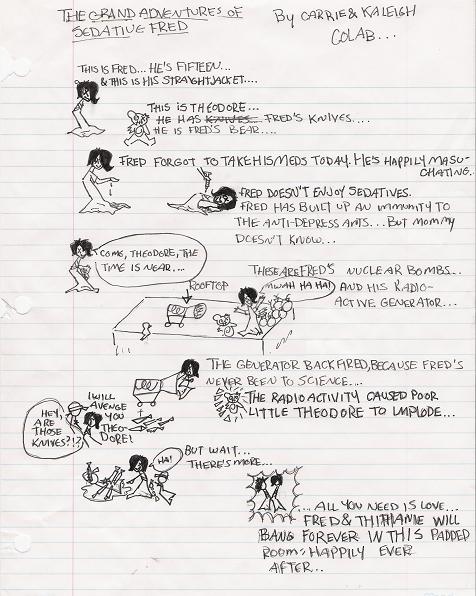 THE GRAND ADVENTURES OF
SEDATIVE FRED
By CARRIE & KALEIGH
COLAB...
THIS IS FRED... HE'S FIFTEEN...
& THIS IS HIS STRAIGHTJACKET....
THIS IS THEODORE...
HE HAS KNIVES... FRED'S KNIVES....
HE IS FRED'S BEAR....
FRED FORGOT TO TAKE HIS MEDS TODAY. HE'S HAPPILY MASU-
CHATING..
FRED DOESN'T ENJOY SEDATIVES.
FRED HAS BUILT UP AN IMMUNITY TO
THE ANTI-DEPRESSANTS... BUT MOMMY
DOESN'T KNOW...
COME, THEODORE, THE
TIME IS NEAR....
THESE ARE FRED'S NUCLEAR BOMBS...
MWAH HA HA!
AND HIS RADIO-
ACTIVE GENERATOR...
ROOFTOP
THE GENERATOR BACKFIRED, BECAUSE FRED'S
NEVER BEEN TO SCIENCE...
THE RADIOACTIVITY CAUSED POOR
LITTLE THEODORE TO IMPLODE...
HEY,
ARE
THOSE
KNIVES?!?
I WILL
AVENGE
YOU
THEO-
DORE!
HA!
BUT WAIT...
THERE'S MORE...
...ALL YOU NEED IS LOVE...
FRED & THITHANIE WILL
BANG FOREVER IN THIS PADDED
ROOM: HAPPILY EVER
AFTER...